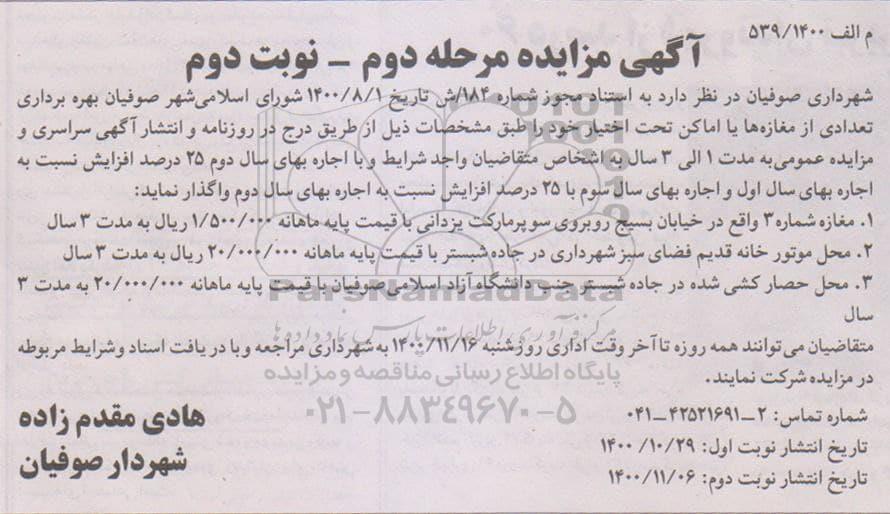 م الف ۵۳۹/۱۴۰۰
آگهی مزایده مرحله دوم - نوبت دوم
شهرداری صوفیان در نظر دارد به استناد مجوز شماره ۱۸۴/ش تاریخ ۱۴۰۰/۸/۱ شورای اسلامی شهر صوفیان بهره برداری
تعدادی از مغازه‌ها یا اماکن تحت اختیار خود را طبق مشخصات ذیل از طریق درج در روزنامه و انتشار آگهی سراسری و
مزایده عمومی به مدت ۱ الی ۳ سال به اشخاص متقاضیان واجد شرایط و با اجاره بهای سال دوم ۲۵ درصد افزایش نسبت به
اجاره بهای سال اول و اجاره بهای سال سوم با ۲۵ درصد افزایش نسبت به اجاره بهای سال دوم واگذار نماید:
۱. مغازه شماره ۳ واقع در خیابان بسیج روبروی سوپرمارکت یزدانی با قیمت پایه ماهانه ۱/۵۰۰/۰۰۰ ریال به مدت ۳ سال
۲. محل موتور خانه قدیم فضای سبز شهرداری در جاده شبستر با قیمت پایه ماهانه ۲۰/۰۰۰/۰۰۰ ریال به مدت ۳ سال
۳. محل حصار کشی شده در جاده شبستر جنب دانشگاه آزاد اسلامی صوفیان با قیمت پایه ماهانه ۲۰/۰۰۰/۰۰۰ به مدت ۳
سال
ParsNamadData
مرکز فرآوری اطلاعات پارس نماد داده‌ها
متقاضیان می‌توانند همه روزه تا آخر وقت اداری روز شنبه ۱۴۰۰/۱۱/۱۶ به شهرداری مراجعه و با دریافت اسناد و شرایط مربوطه
در مزایده شرکت نمایند.
پایگاه اطلاع رسانی مناقصه و مزایده
۰۲۱-۸۸۳۴۹۶۷۰-۵
شماره تماس: ۲-۴۲۵۲۱۶۹۱-۰۴۱
تاریخ انتشار نوبت اول: ۱۴۰۰/۱۰/۲۹
تاریخ انتشار نوبت دوم: ۱۴۰۰/۱۱/۰۶
هادی مقدم زاده
شهردار صوفیان